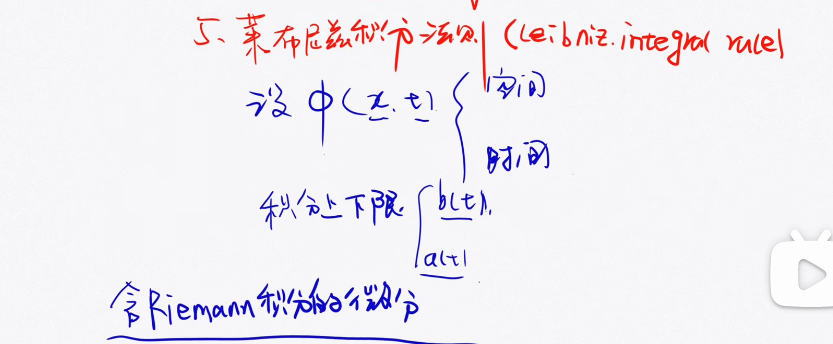 5、莱布尼兹积分法则 (Leibniz integral rule)
设 φ(x, t) { 空间
时间
积分上下限 { b(t),
a(t)
含Riemann积分的微分